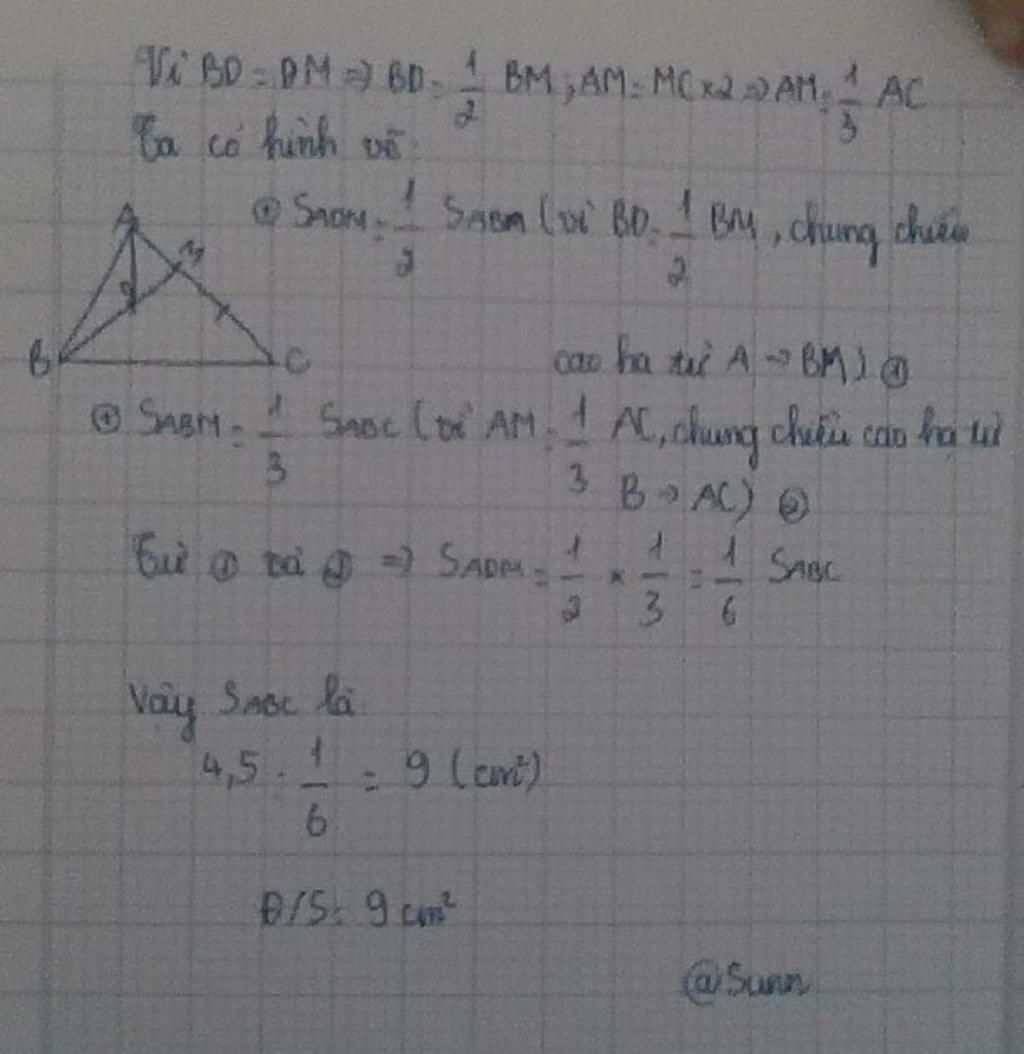 Vì BD = DM => BD = 1/2 BM ; AM = MC x 2 => AM = 1/3 AC
Ta có hình vẽ:
A
⊕ SADM = 1/2 SABM (vì BD = 1/2 BM, chung chiều
M
D
B
C
cao hạ từ A -> BM) ①
⊕ SABM = 1/3 SABC (vì AM = 1/3 AC, chung chiều cao hạ từ
B -> AC) ②
Từ ① và ② => SADM = 1/2 x 1/3 = 1/6 SABC
Vậy SABC là
4,5 : 1/6 = 9 (cm²)
Đ/S: 9 cm²
@Sunn